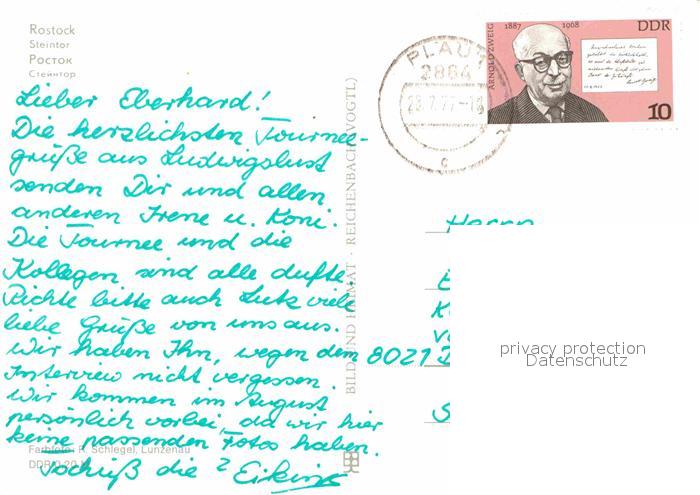 Rostock
Steintor
Росток
Стейнтор
Lieber Eberhard!
Die herzlichsten Tournee-
grüße aus Ludwigslust
senden Dir und allen
anderen Irene u. Koni.
Die Tournee und die
Kollegen sind alle dufte.
Richte bitte auch Lutz viele
liebe Grüße von uns aus.
Wir haben Ihn, wegen dem
Interview nicht vergessen.
Wir kommen im August
persönlich vorbei, da wir hier
keine passenden Fotos haben.
Tschüß die 2
Farbfoto: R. Schlegel, Lunzenau
DDR 0,20 M
BILD UND HEIMAT · REICHENBACH (VOGTL)
PLAU
2864
28.7.77-18
c
ARNOLD ZWEIG
1887 1968
DDR
10
Herrn
8021
privacy protection
Datenschutz